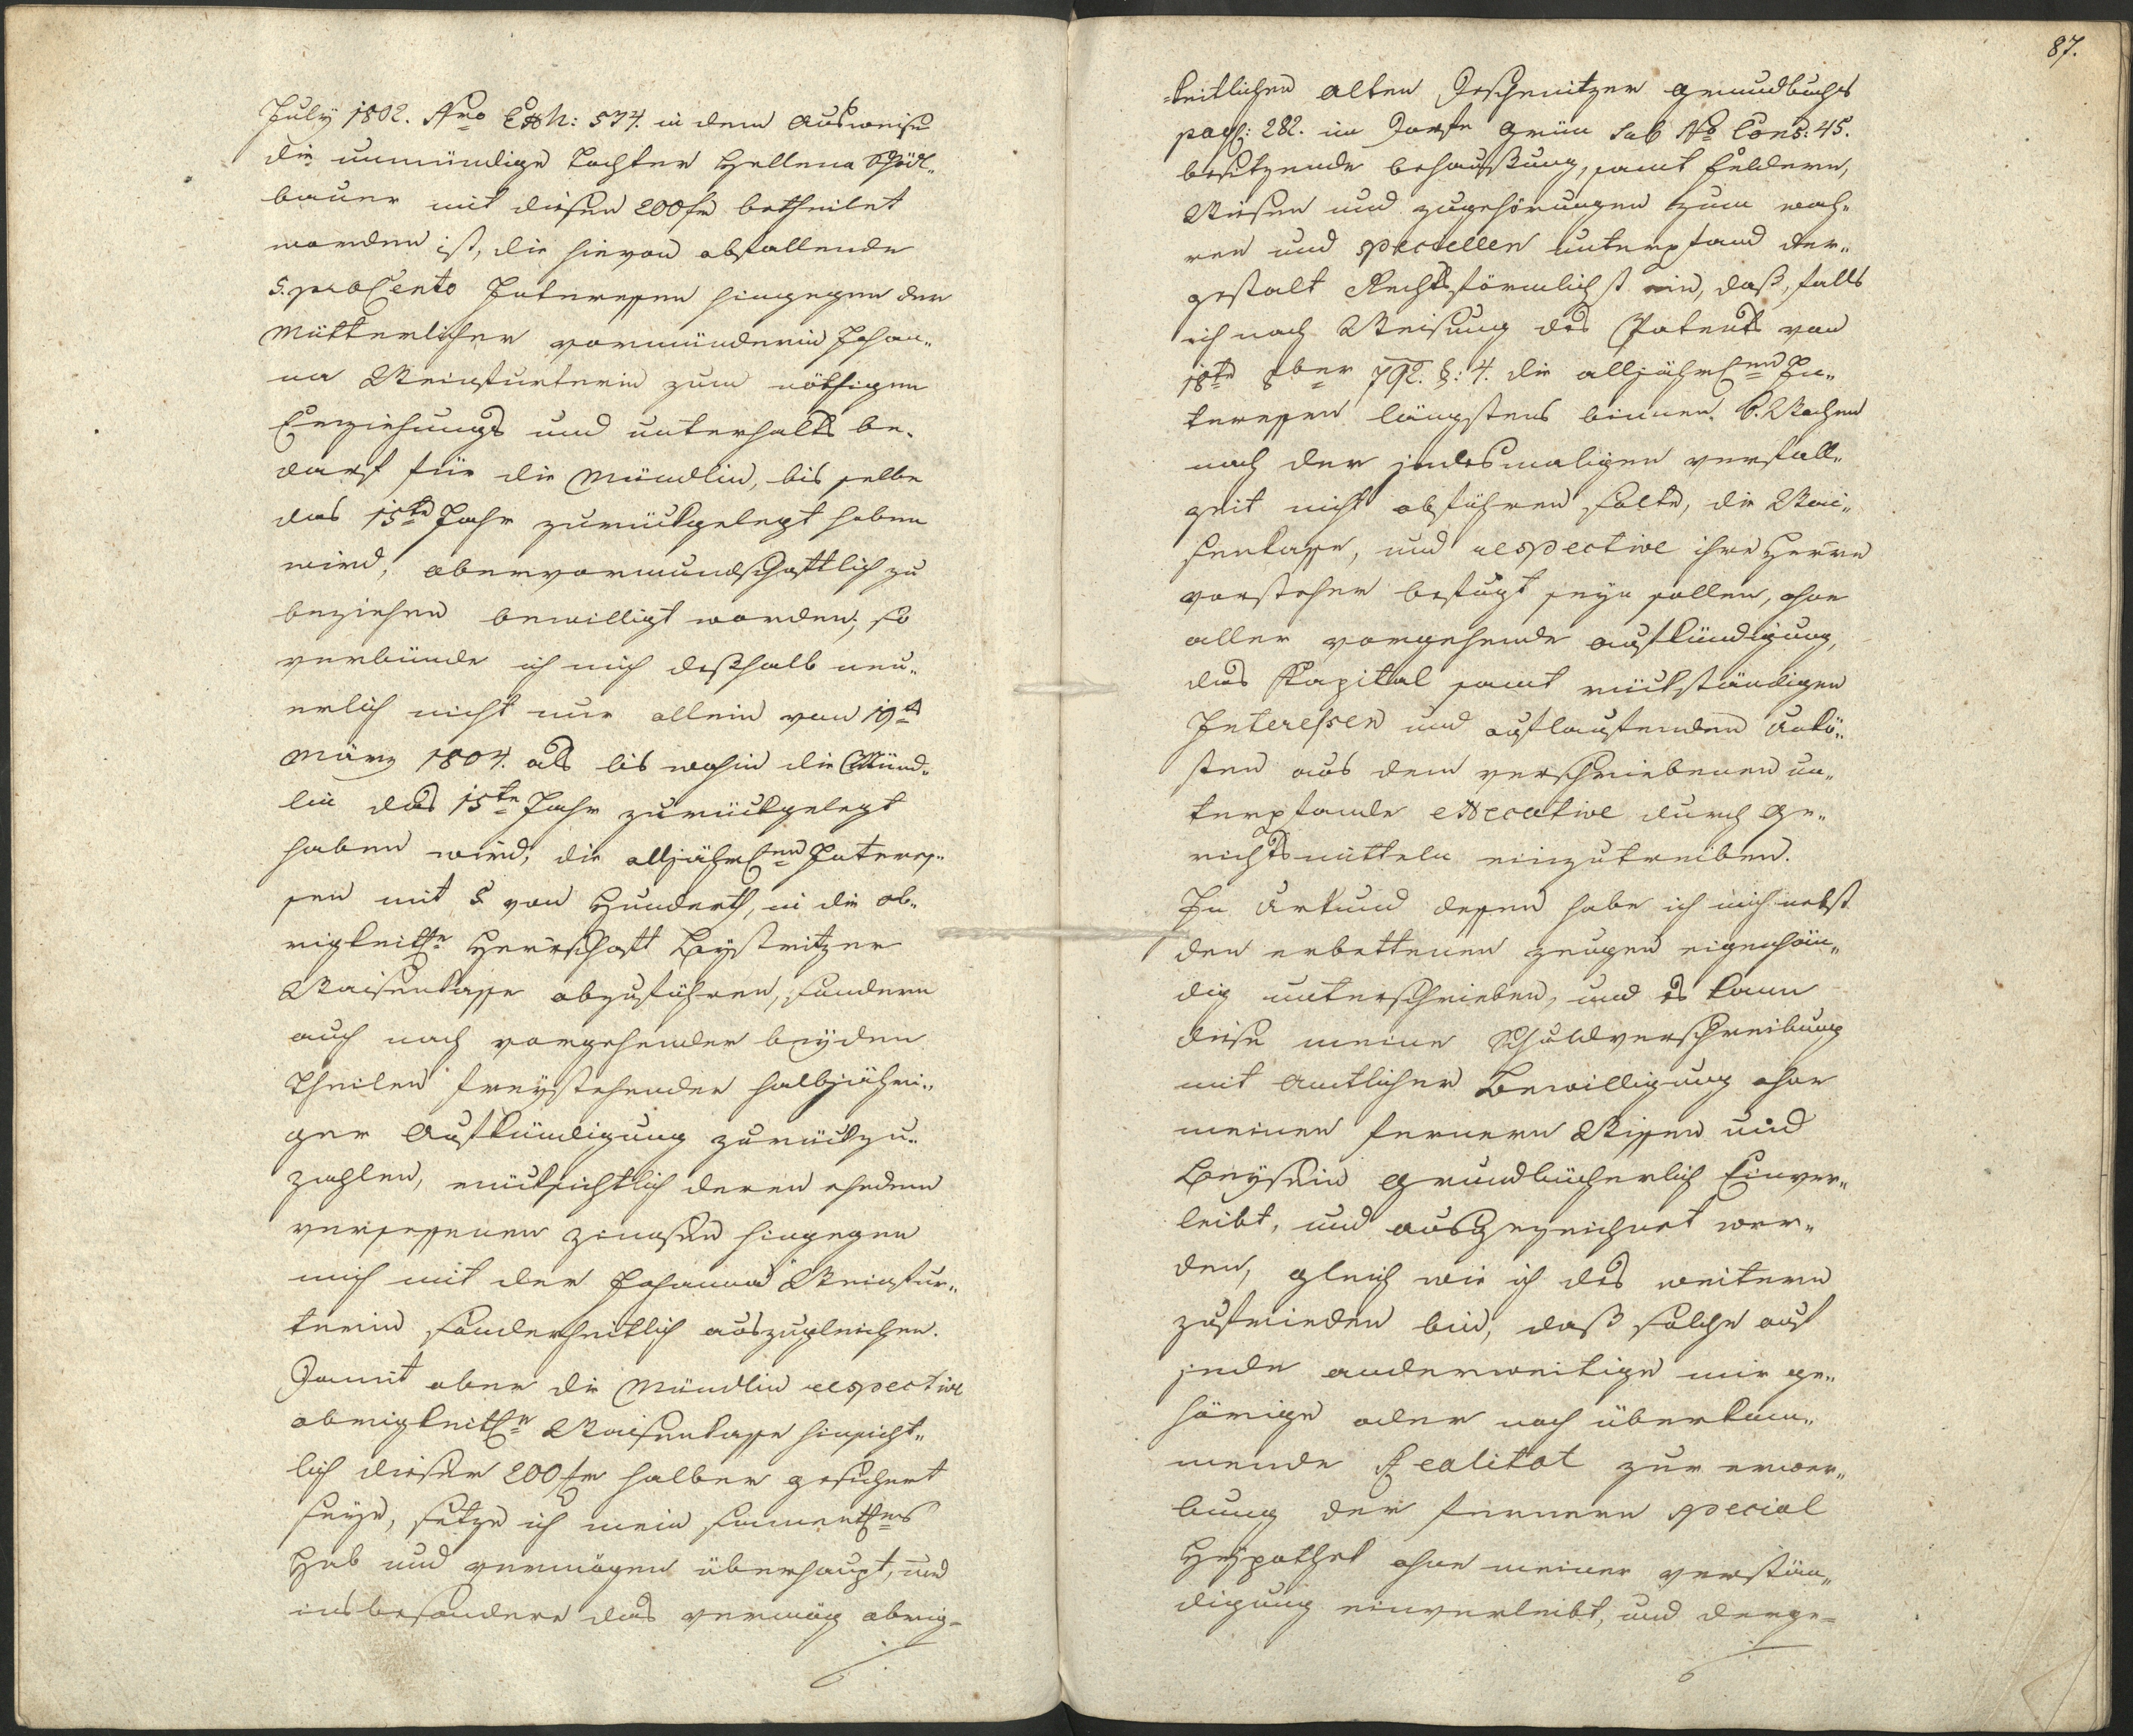 July 1802. Nro Exh: 534. in dem Ausweise
die unmündige Tochter Hellena Schödl„
bauer mit diesen 200 fr betheilet
worden ist, die hievon abfallende
5. pro Cento Interessen hingegen der
Mütterlicher vormünderin Johan„
na Weinfurterin zum nöthigen
Erziehungs und unterhalts be„
darf für die Mündlin, bis selbe
das 15te Jahr zurückgelegt haben
wird, obervormundschaftlich zu
beziehen bewilligt worden; so
verbünde ich mich deßhalb neu„
erlich nicht nur allein von 19t
März 1804. als bis wohin die Münd„
lin das 15te Jahr zurückgelegt
haben wird, die alljährlen Interes„
sen mit 5 von Hunderth, in die ob„
rigkeitle Herrschaft Bystritzer
Waisenkasse abzuführen, sondern
auch nach vorgehender beyden
Theilen freystehender halbjähri„
ger Aufkündigung zurückzu„
zahlen, rücksichtlich deren ehedem
versessenen Zinnsen hingegen
mich mit der Johanna Weinfur„
terin sonderheitlich auszugleichen.
Damit aber die Mündlin respective
obrigkeitle Waisenkasse hinsicht„
lich dieser 200 fr halber gesichert
seye, setze ich mein sammentles
Hab und vermögen überhaupt, und
insbesondere das vermög obrig„
87.
„keitlichen alten Deschenitzer grundbuchs
pag: 282. im Dorfe Grün sub No Cons: 45.
besitzende behaußung, samt Feldern,
Wiesen und zugehörungen zum wah„
ren und speciellen unterpfand der„
gestalt Rechtsförmlichst ein, daß, falls
ich nach Weisung des Patents von
18te 8ber 792. §: 4. die alljährlen In„
teressen längstens binnen 6. Wochen
nach der jedesmaligen verfall„
zeit nicht abführen solte, die Wai„
senkasse, und respective ihre Herrn
vorsteher befugt seyn sollen, ohne
aller vorgehende aufkündigung,
das Kapital samt rückständigen
Interessen und auflaufenden Unkö„
sten aus dem verschriebenen un„
terpfande executive durch Ge„
richtsmitteln einzutreiben.
In Urkund dessen habe ich mich nebst
den erbettenen zeugen eigenhän„
dig unterschrieben, und es kann
diese meine Schuldverschreibung
mit Amtlicher Bewilligung ohne
meinen fernern Wissen und
Beysein Grundbücherlich Einver„
leibt, und ausgezeichnet wer„
den, gleich wie ich des weitern
zufrieden bin, daß solche auf
jede anderweitige mir ge„
hörige oder noch überkom„
mende Realitat zur erwer„
bung der fernern special
Hypothek ohne meiner verstän„
digung einverleibt, und derge„